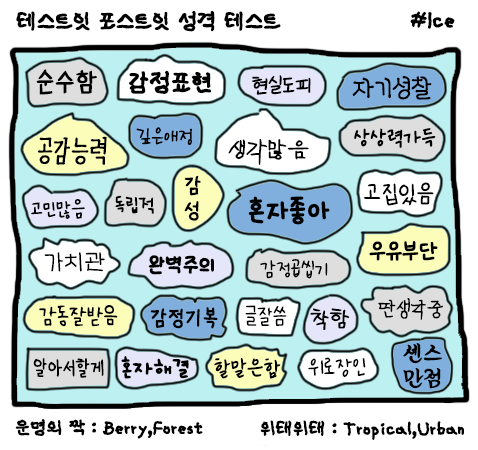 테스트잇 포스트잇 성격 테스트 #Ice
순수함 감정표현 현실도피 자기성찰
공감능력 깊은애정 생각많음 상상력가득
고민많음 독립적 감성 혼자좋아 고집있음
가치관 완벽주의 감정곱씹기 우유부단
감동잘받음 감정기복 글잘씀 착함 딴생각중
알아서할게 혼자해결 할말은함 위로장인 센스만점
운명의 짝 : Berry,Forest 위태위태 : Tropical,Urban